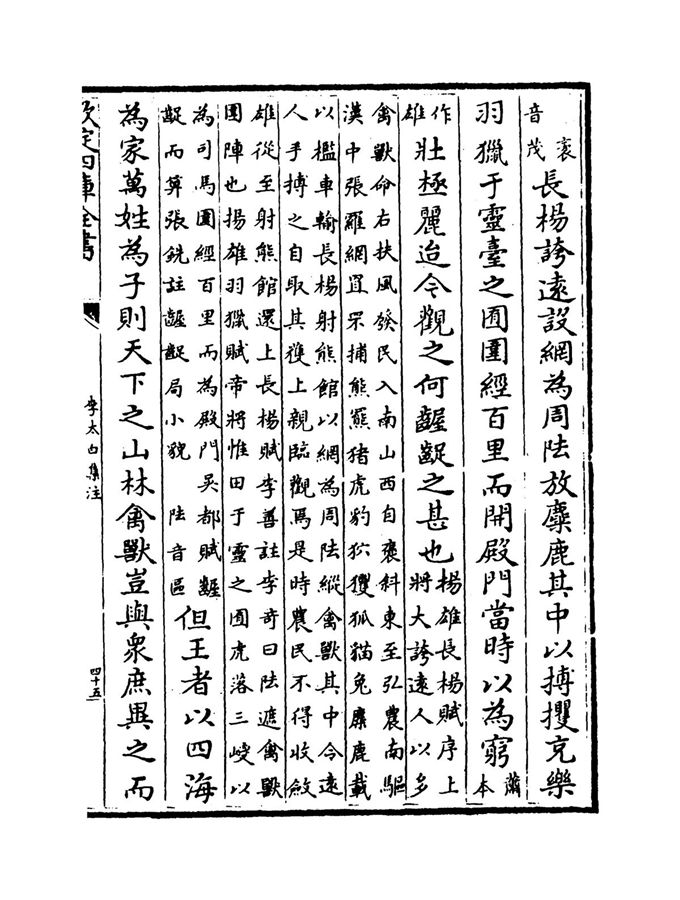 袤
音茂
長楊誇遠設網為周阹放麋鹿其中以搏攫充樂
羽獵于靈臺之囿圍經百里而開殿門當時以為窮
蕭
本
作
雄
壯極麗迨今觀之何齷齪之甚也
楊雄長楊賦序上
將大誇遠人以多
禽獸命右扶風發民入南山西自褒斜東至弘農南驅
漢中張羅網罝罘捕熊羆猪虎豹狖玃狐貓兔麋鹿載
以檻車輸長楊射熊館以網為周阹縱禽獸其中令遠
人手搏之自取其獲上親臨觀焉是時農民不得收斂
雄從至射熊館還上長楊賦李善註李奇曰阹遮禽獸
圍陣也揚雄羽獵賦帝將惟田于靈之囿虎落三嵏以
為司馬圍經百里而為殿門 吳都賦齷
齪而算張銑註齷齪局小貌 阹音區
但王者以四海
為家萬姓為子則天下之山林禽獸豈與衆庶異之而
欽定四庫全書
李太白集注
四十五